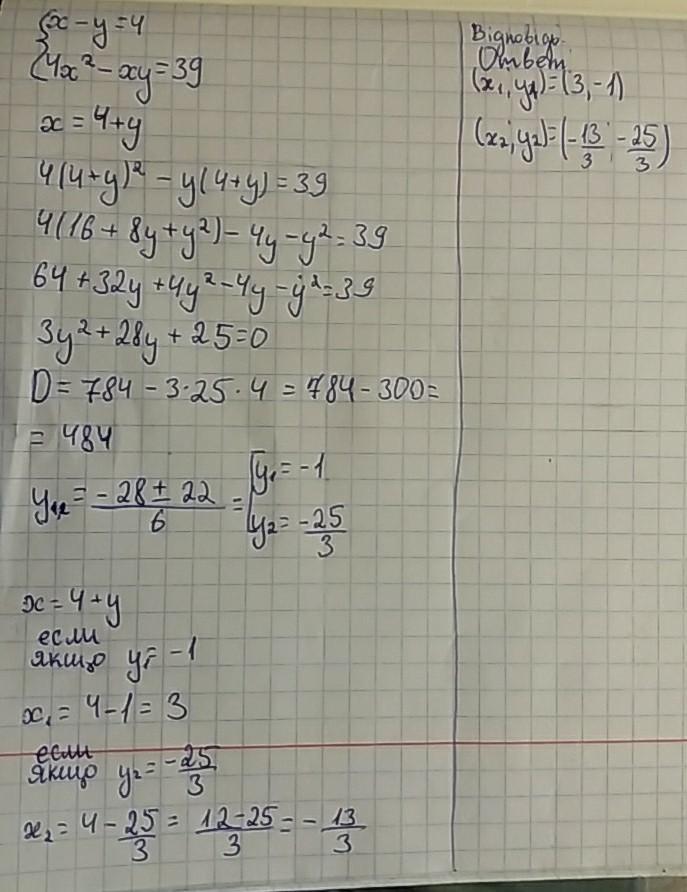 {x - y = 4
{4x² - xy = 39
x = 4 + y
4(4+y)² - y(4+y) = 39
4(16 + 8y + y²) - 4y - y² = 39
64 + 32y + 4y² - 4y - y² = 39
3y² + 28y + 25 = 0
D = 784 - 3·25·4 = 784 - 300 =
= 484
y₁,₂ = (-28 ± 22)/6 = [y₁ = -1
[y₂ = -25/3
x = 4 + y
если
якщо y₁ = -1
x₁ = 4 - 1 = 3
если
якщо y₂ = -25/3
x₂ = 4 - 25/3 = (12 - 25)/3 = -13/3
Відповідь.
Ответ
(x₁, y₁) = (3, -1)
(x₂; y₂) = (-13/3; -25/3)